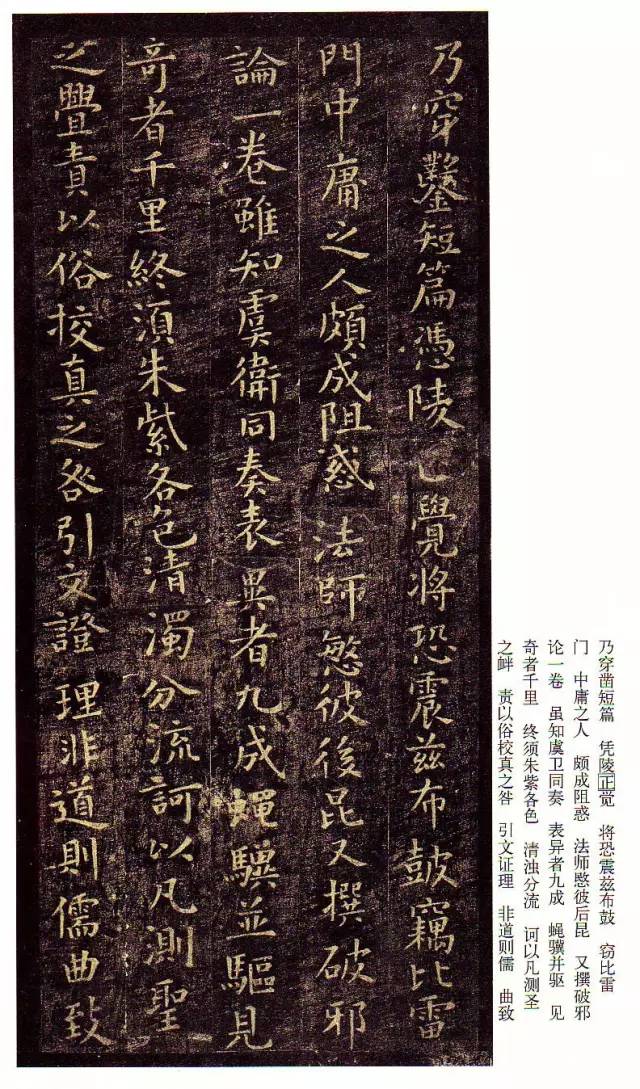 乃穿鑿短篇憑陵覺將恐震兹布鼓竊比雷
門中庸之人頗成阻惑法師慜彼後昆又撰破邪
論一卷雖知虞衛同奏表異者九成蠅驥並驅見
奇者千里終須朱紫各色清濁分流訶以凡測聖
之舋責以俗校真之咎引文證理非道則儒曲致
乃穿凿短篇 凭陵正觉 将恐震兹布鼓 窃比雷
门 中庸之人 颇成阻惑 法师愍彼后昆 又撰破邪
论一卷 虽知虞卫同奏 表异者九成 蝇骥并驱 见
奇者千里 终须朱紫各色 清浊分流 诃以凡测圣
之衅 责以俗校真之咎 引文证理 非道则儒 曲致